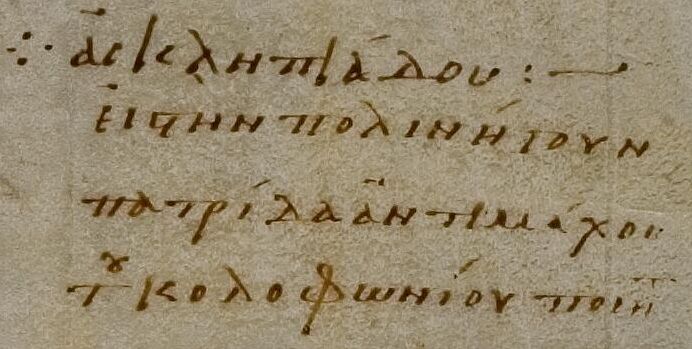 ∴ ἀσκληπιάδου :—
εἰς την πολιν ήγουν
πατρίδα ἀντιμάχου
τοῦ κολοφωνίου ποιητ